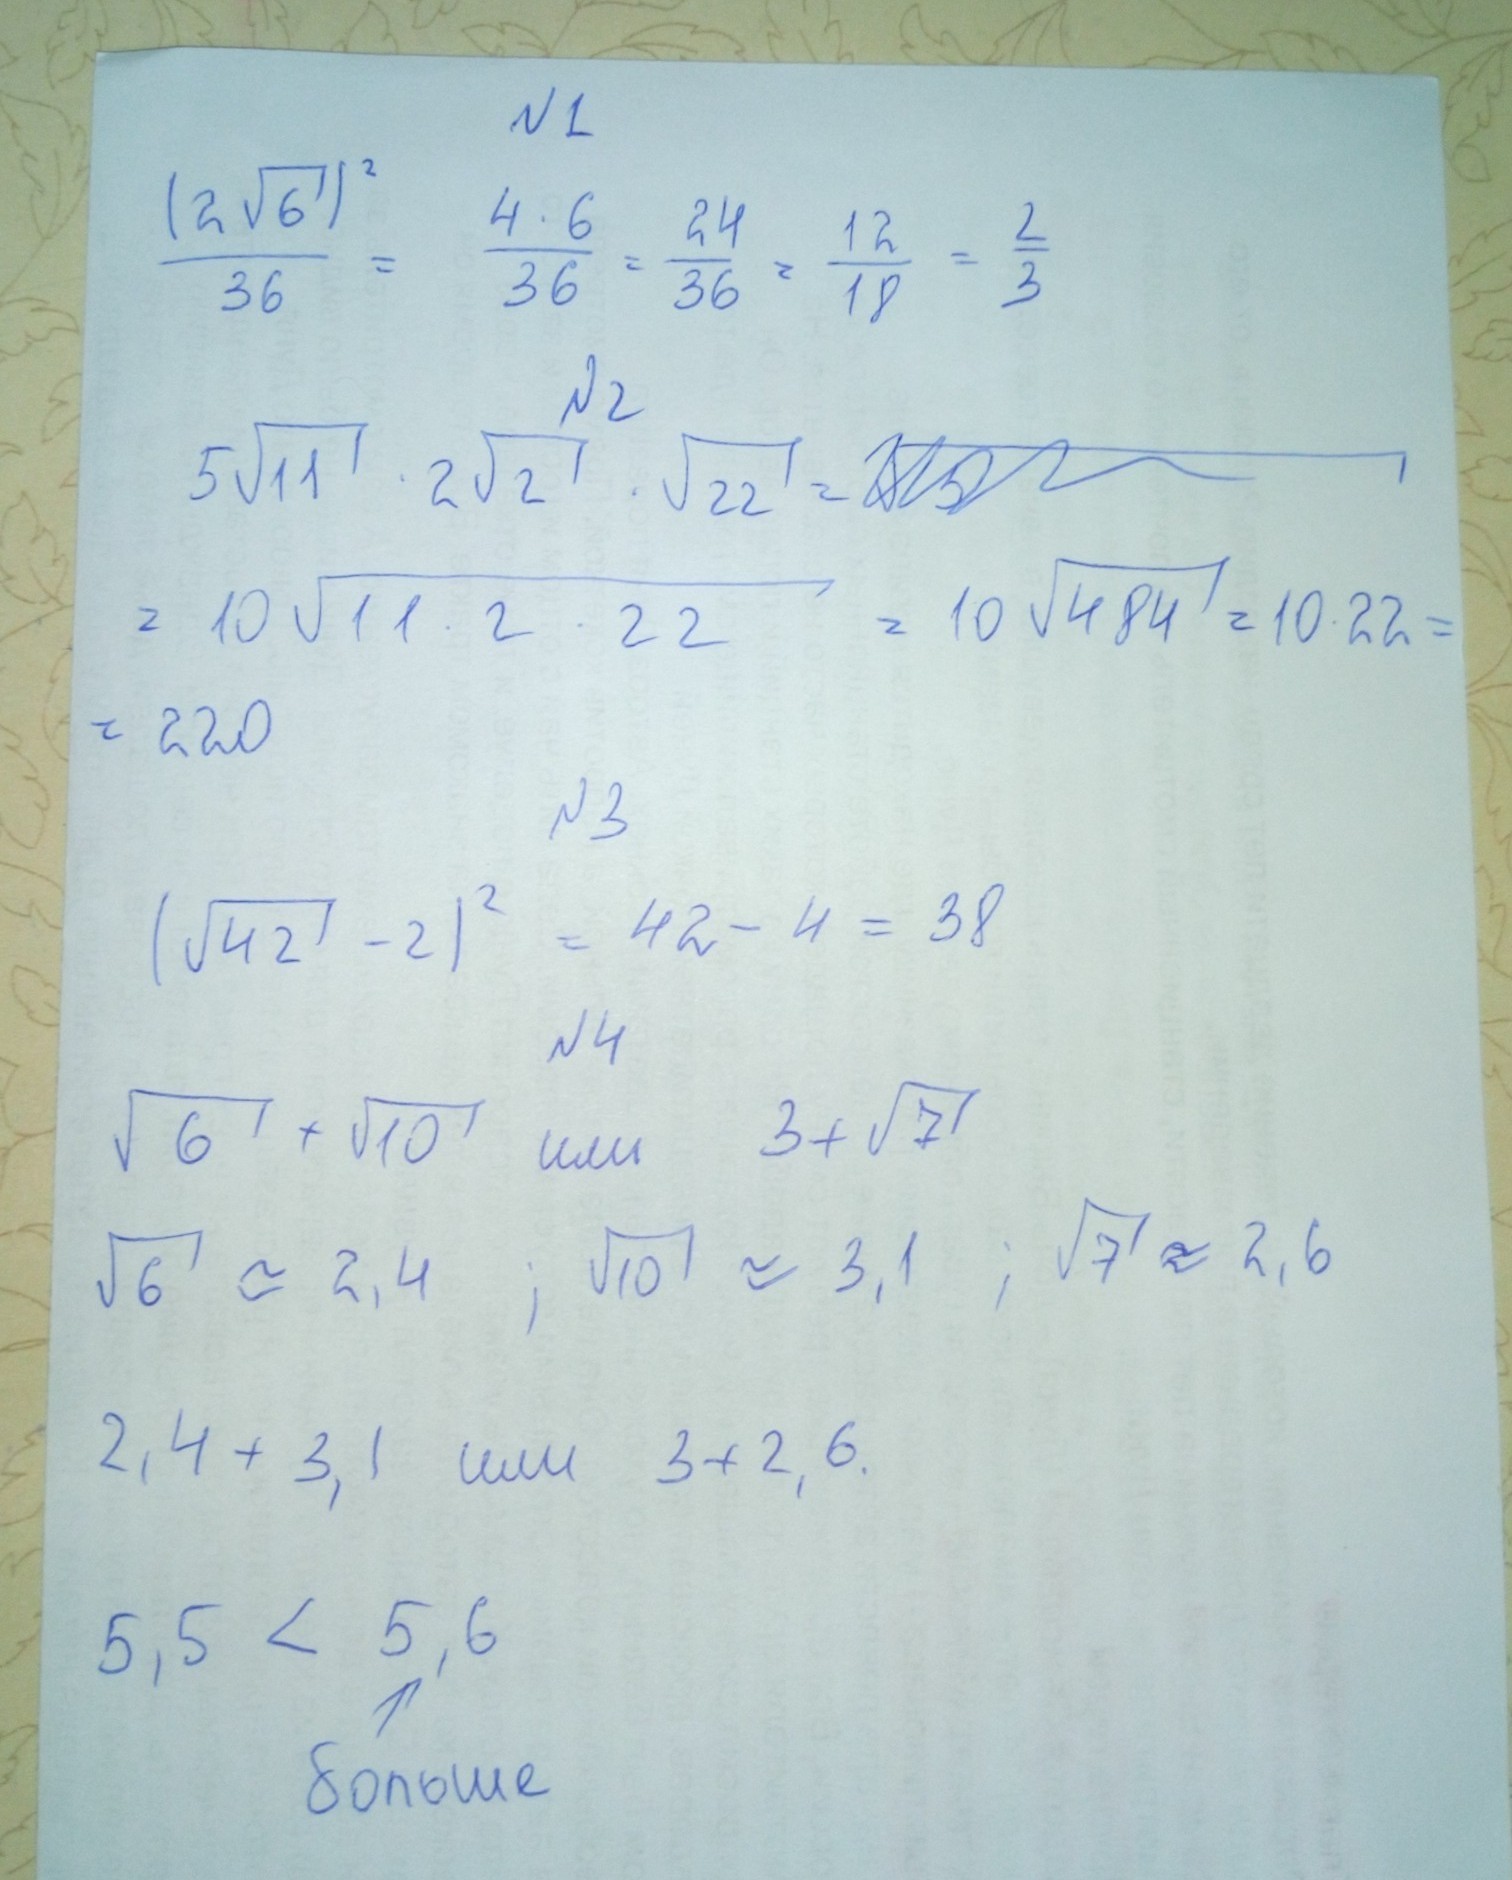 №1
(2√6)² / 36 = 4·6 / 36 = 24/36 = 12/18 = 2/3
№2
5√11 · 2√2 · √22 =
= 10√11·2·22 = 10√484 = 10·22 =
= 220
№3
(√42 - 2)² = 42 - 4 = 38
№4
√6 + √10 или 3+√7
√6 ≈ 2,4 ; √10 ≈ 3,1 ; √7 ≈ 2,6
2,4 + 3,1 или 3+2,6.
5,5 < 5,6
↑
больше